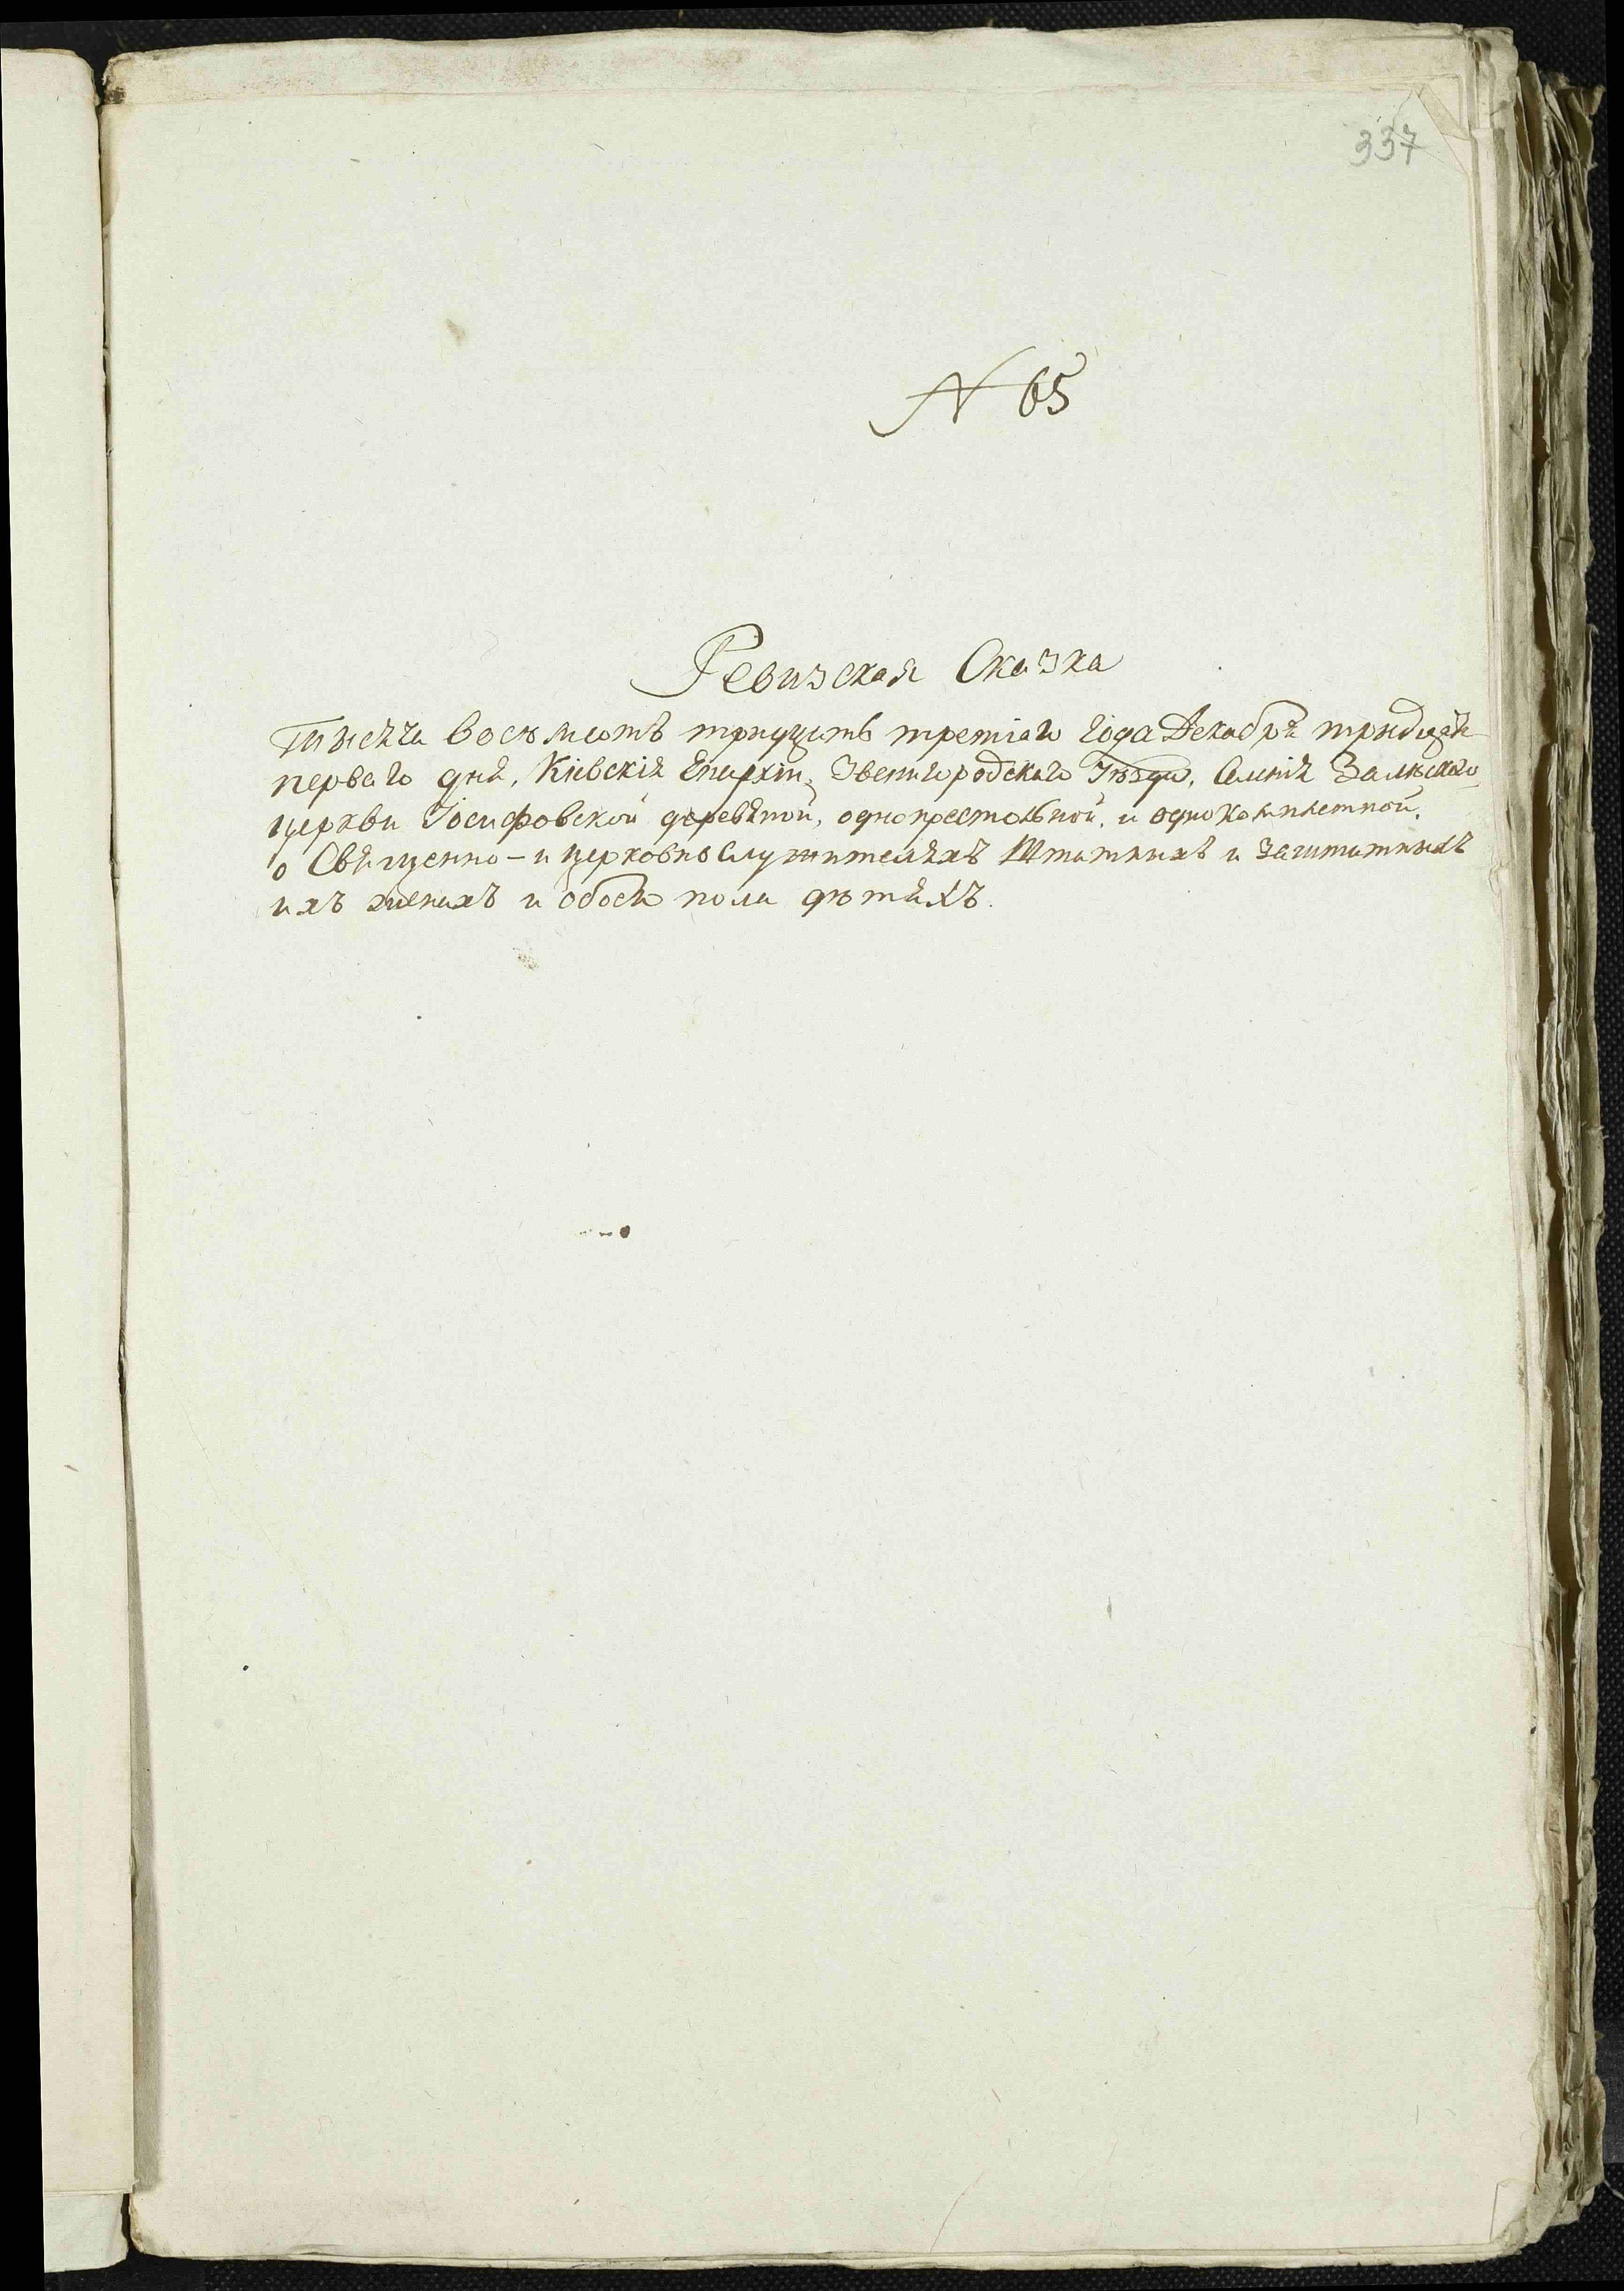 337
N 65
Ревизская Сказка
Тысяча восемьсотъ тридцать третіаго года Декабря тридцать
перваго дня, Кіевскія Епархіи, Звенигородскаго Уѣзда, Селнія Залѣскаго
церкви Іосифовской деревяной, однопрестольной, и однокомплетной,
о Священно - и церковно служителяхъ Штатныхъ и Заштатныхъ
ихъ женахъ и обоего пола дѣтяхъ.